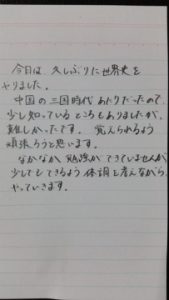 今日は、久しぶりに世界史を
やりました。
中国の三国時代あたりだったので、
少し知っているところもありましたが、
難しかったです。覚えられるよう
頑張ろうと思います。
なかなか勉強ができていませんが、
少しでもできるよう体調を考えながら、
やっていきます。